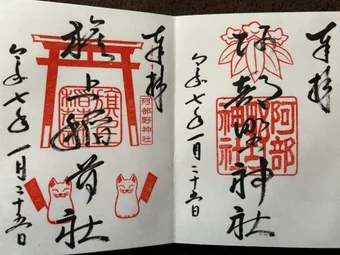 奉拝
阿部野神社
阿部野神社
令和七年一月二十五日
奉拝
旗上稲荷社
阿部野神社
令和七年一月二十五日